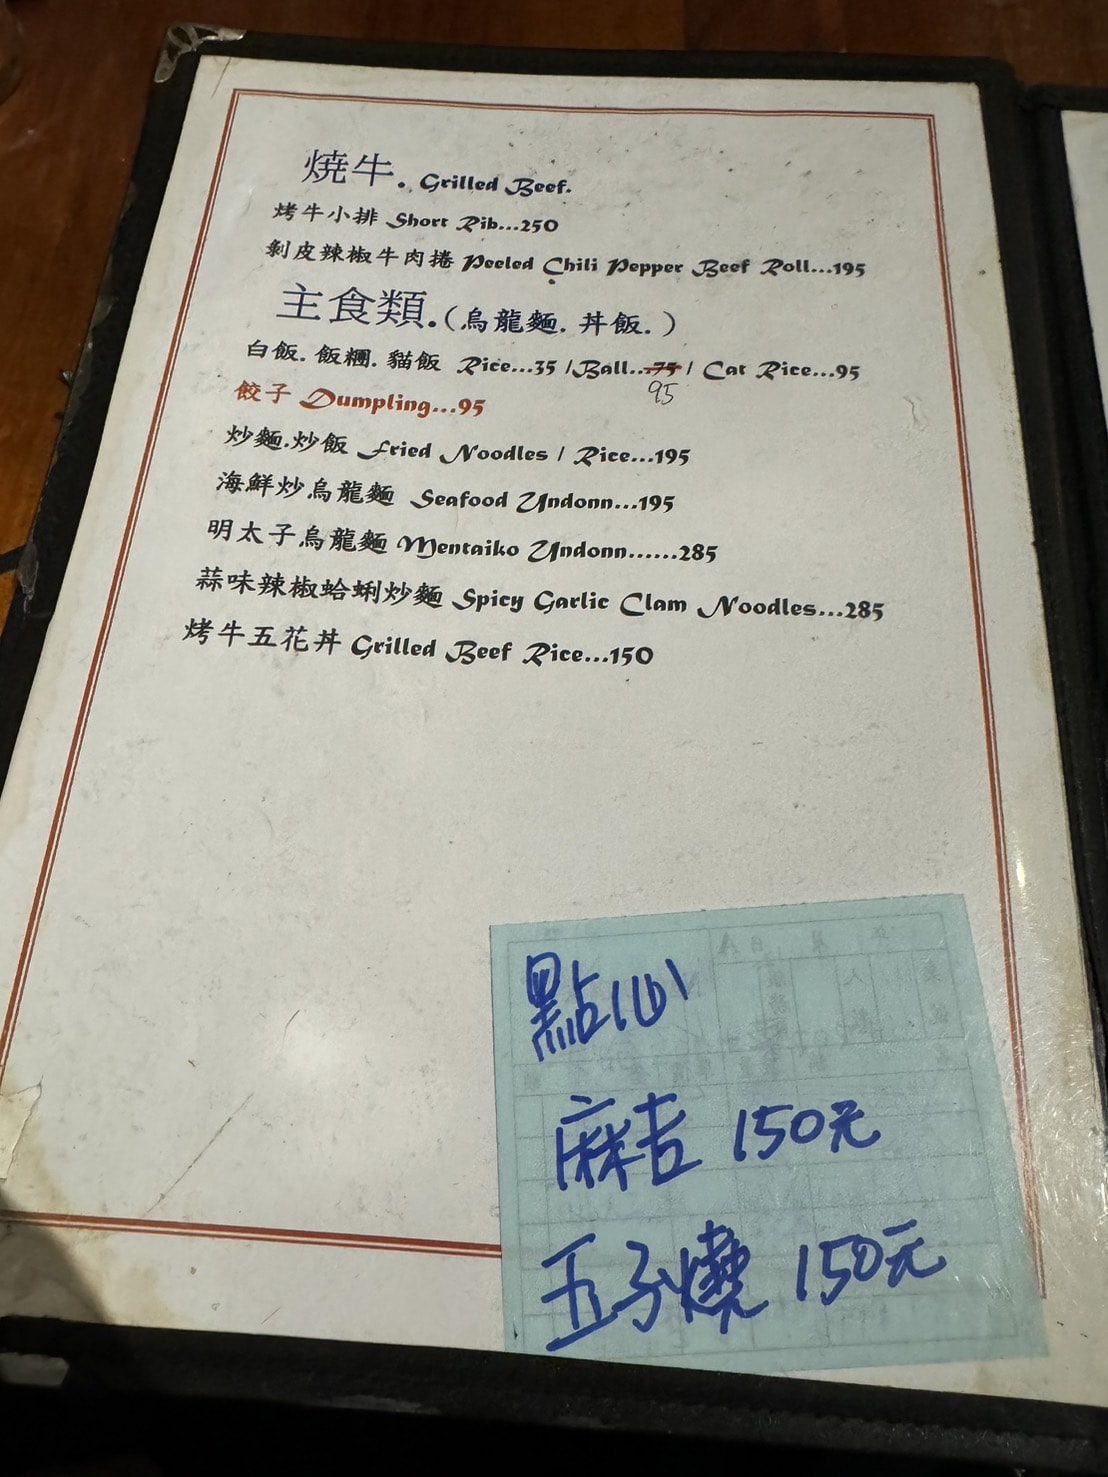 燒牛. Grilled Beef.
烤牛小排 Short Rib...250
剝皮辣椒牛肉捲 Peeled Chili Pepper Beef Roll...195
主食類.(烏龍麵. 丼飯. )
白飯. 飯糰. 貓飯 Rice...35 /Ball...75 / Cat Rice...95
95
餃子 Dumpling...95
炒麵.炒飯 Fried Noodles / Rice...195
海鮮炒烏龍麵 Seafood Undonn...195
明太子烏龍麵 Mentaiko Undonn......285
蒜味辣椒蛤蜊炒麵 Spicy Garlic Clam Noodles...285
烤牛五花丼 Grilled Beef Rice...150
點心
麻吉 150元
玉子燒 150元